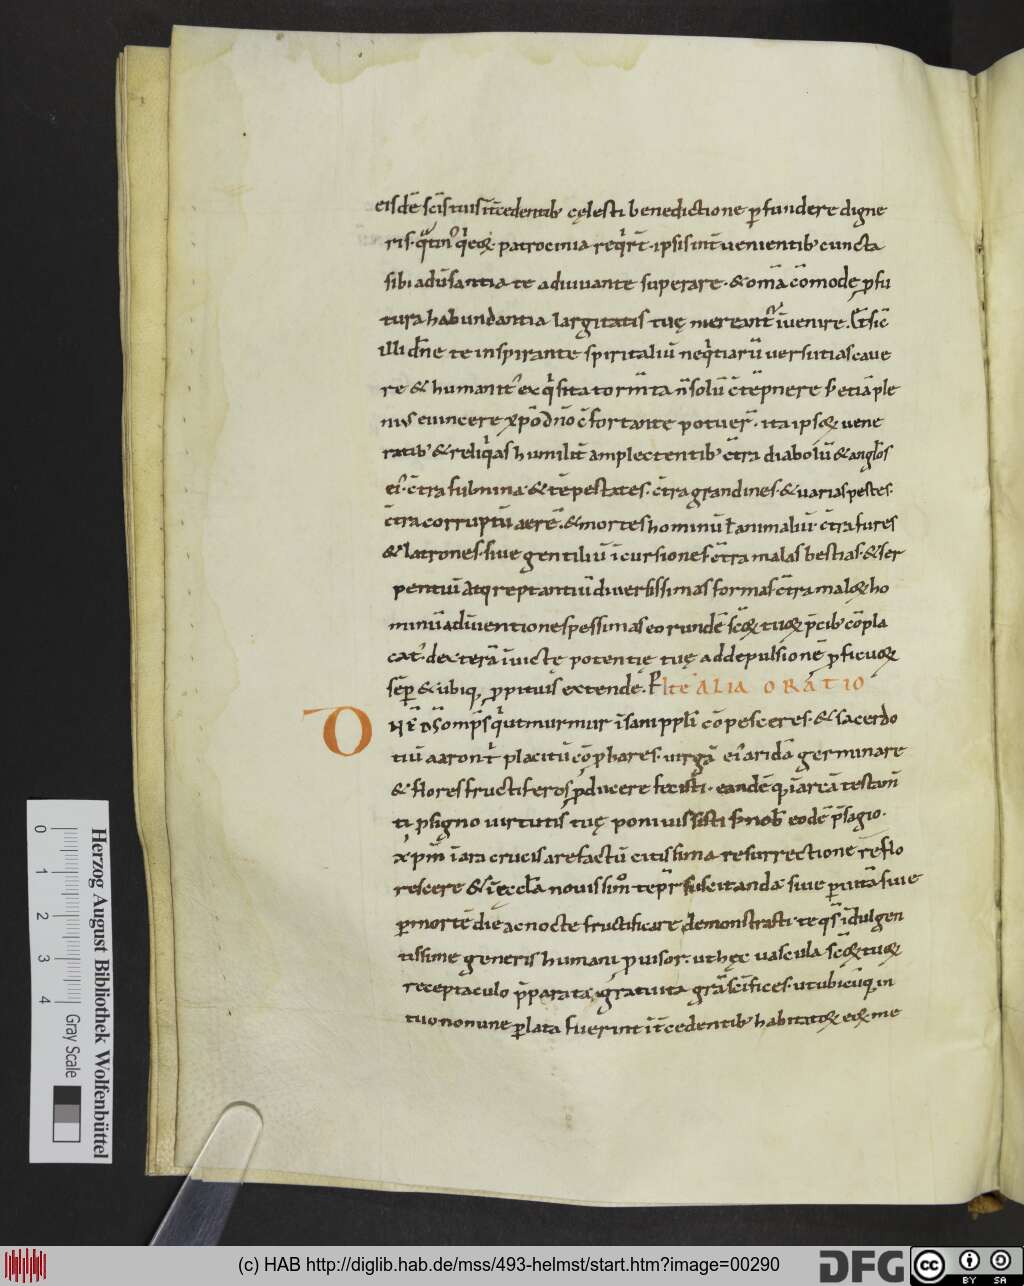 eisdē scīs tuis īt̄cedentib; cęlesti benedictione ꝑfundere digne
ris. patrocinia ipsis int̄uenientib; cuncta
sibi aduersantia te adiuuante superare. & om̄a cōmode ꝑfu
tura habundantia largitatis tuę mereant᷑ īuenire. Et sic
illi dn̄e te inspirante spiritaliū neqͥtiarū uersutias caue
re & humanit᷑ exqͥsita torm̄ta n̄ solū etiā ple
nius euincere xp̄o dn̄o c̄fortante potuer̄. ita ipsoꝝ uene
ratib; & reliqͥas humilit̄ amplectentib; c̄tra diabolū & angl̄os
ei᷒. c̄tra fulmina. & tēpestates. c̄tra grandines. & uarias pestes.
c̄tra corruptū aerē. & mortes hominū ł animaliū. c̄tra fures
& latrones. siue gentiliū īcursiones c̄tra malas bestias. & ser
pentiū atq; reptantiū diuersissimas formas c̄tra maloꝝ ho
minū adīuentiones pessimas eorundē sc̄oꝝ tuoꝝ p̄cib; cōpla
cat᷒. dexterā īuictę potentię tuę ad depulsionē ꝑficuoꝝ
sēp & ubiq; ꝓpitius extende. P ITE ALIA ORATIO
D n̄r ōmps qͥ ut murmur cōpesceres. & sacerdo
tiū aaron placitū cōꝓbares. uirgā ei᷒ aridā germinare
& flores fructiferos ꝓducere fecisti. eandēq; ī arcā testam̄
ti ꝓ signo uirtutis tuę poni iussisti eodē p̄sagio.
xp̄m ī ara crucis arefactū citissima resurrectione reflo
rescere & ī ęccl̄a nouissimo tēpr̄ suscitandā siue ꝑ uitā siue
ꝑ mortē die ac nocte fructificare demonstrasti. te qs̄ īdulgen
tissime generis humani ꝓuisor. ut hęc uascula sc̄oꝝ tuoꝝ
receptaculo p̄parata, gratuita grā sc̄ifices. ut ubicūq; in
tuo nomine ꝑlata fuerint īt̄cedentib; habitatoꝝ eoꝝ me
Herzog August Bibliothek Wolfenbüttel
0 1 2 3 4 Gray Scale
(c) HAB http://diglib.hab.de/mss/493-helmst/start.htm?image=00290
DFG cc BY SA